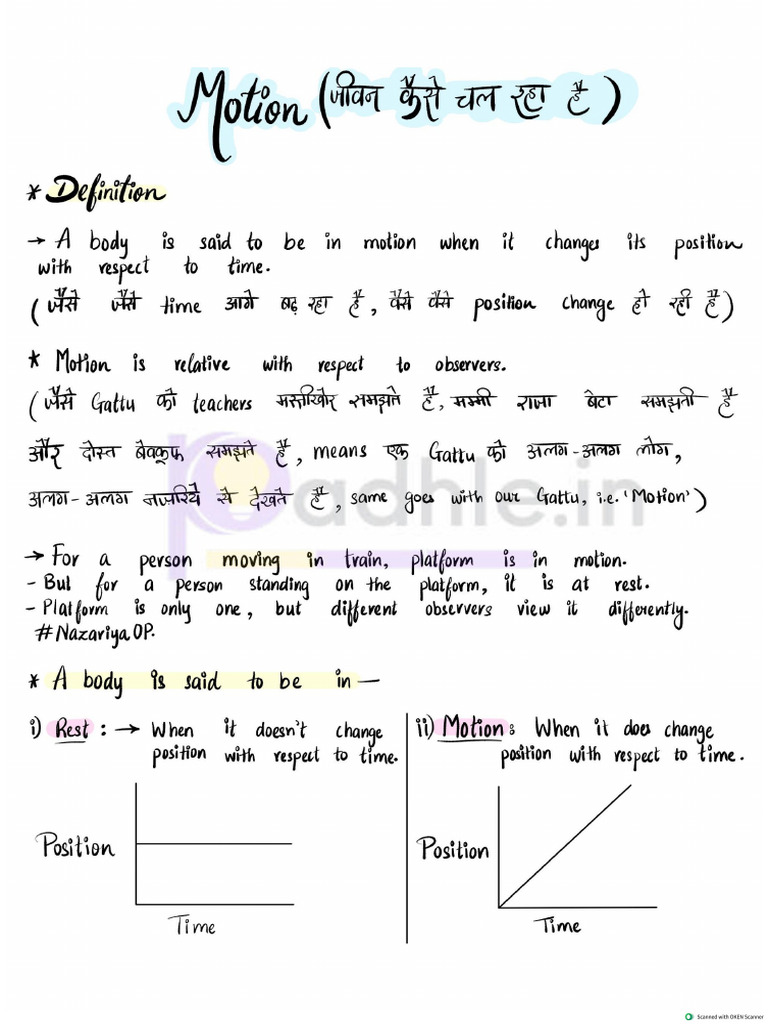 Motion (जीवन कैसे चल रहा है)
* Definition
→ A body is said to be in motion when it changes its position
with respect to time.
(जैसे जैसे time आगे बढ़ रहा है, वैसे वैसे position change हो रही है)
* Motion is relative with respect to observers.
(जैसे Gattu को teachers मस्तीखोर समझते हैं, मम्मी राजा बेटा समझती है
और दोस्त बेवकूफ समझते हैं, means एक Gattu को अलग-अलग लोग,
अलग-अलग नजरिये से देखते हैं, same goes with our Gattu, i.e. 'Motion')
padhle.in
→ For a person moving in train, platform is in motion.
- But for a person standing on the platform, it is at rest.
- Platform is only one, but different observers view it differently.
# Nazariya OP.
* A body is said to be in —
i) Rest : → When it doesn't change
position with respect to time.
Position
Time
ii) Motion: When it does change
position with respect to time.
Position
Time
Scanned with OKEN Scanner